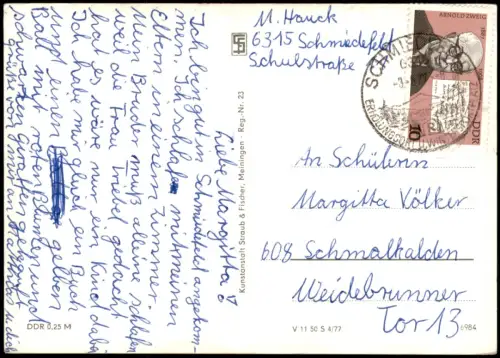 M. Hauck
6315 Schmiedefeld
Schulstraße
ARNOLD ZWEIG
DDR
10
Liebe Margitta!
Ich bin gut in Schmiedefeld angekom-
men. Ich schlafe mit meinen
Eltern in einem Zimmer.
Mein Bruder muß alleine schlafen
weil die Frau Triebel gedacht
hat es wäre nur ein Kind dabei.
Ich habe mir gleich ein Buch
und einen gelben
Ball mit roten Blumen und
schwarzen Giraffen gekauft.
Kunstanstalt Straub & Fischer, Meiningen - Reg.-Nr. 23
An Schülerin
Margitta Völker
608 Schmalkalden
Weidebrunner
Tor 13
DDR 0,25 M
V 11 50 S 4/77
6984